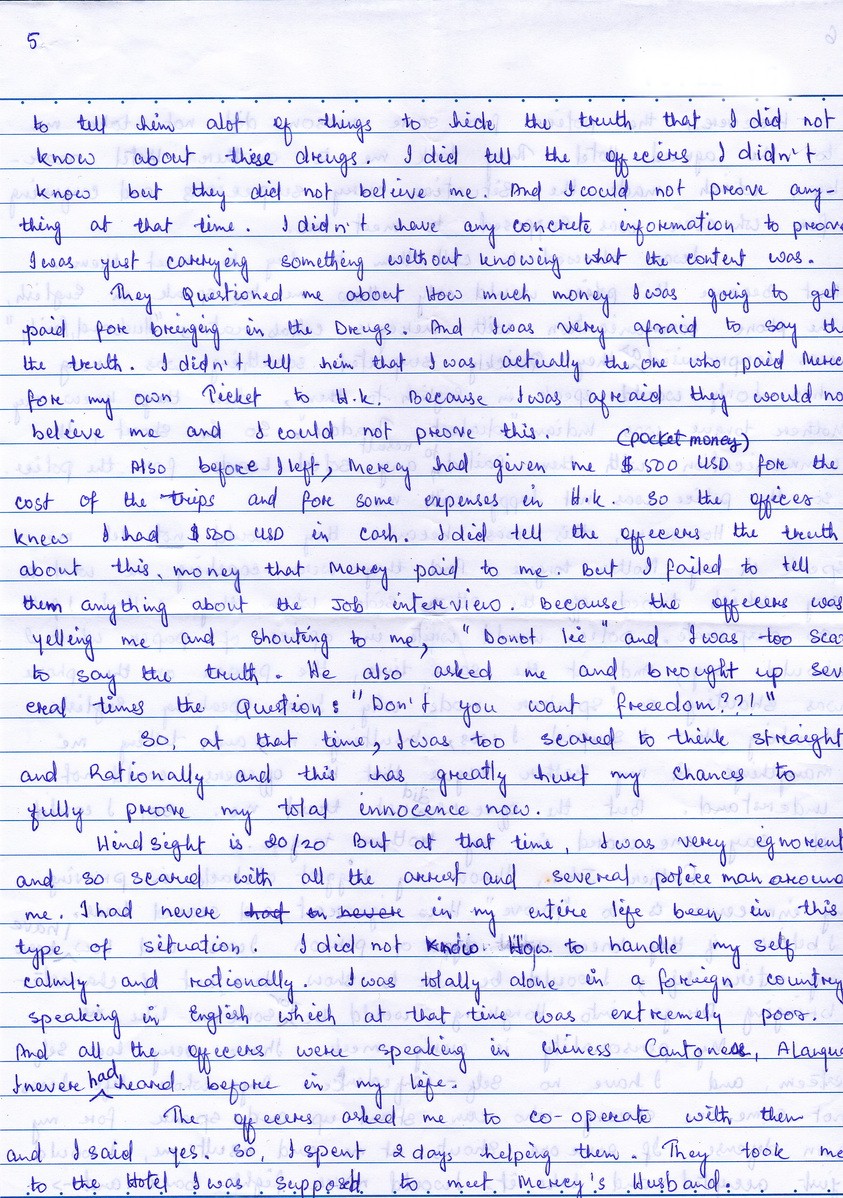 5
to tell him alot of things to hide the truth that I did not
know about these drugs. I did tell the officers I didn't
know but they did not believe me. And I could not prove any-
thing at that time. I didn't have any concrete information to prove
I was just carrying something without knowing what the content was.
They Questioned me about How much money I was going to get
paid for bringing in the Drugs. And I was very afraid to say th
the truth. I didn't tell him that I was actually the one who paid Merc
for my own Ticket to H.k Because I was afraid they would no
believe me and I could not prove this.
(pocket money)
Also before I left, Mercy had given me $ 500 USD for the
cost of the trips and for some expenses in H.k. So the officer
knew I had $500 USD in cash. I did tell the officers the truth
about this money that Mercy paid to me. But I failed to tell
them anything about the Job interview. Because the officers was
yelling me and shouting to me, "Donot lie" and I was too scar
to say the truth. He also asked me and brought up sev
eral times the Question: "Don't you want freedom??!"
So, at that time, I was too scared to think straight
and Rationally and this has greatly hurt my chances to
fully prove my total innocence now.
Hindsight is 20/20 But at that time, I was very ignorent
and so scared with all the arrest and several police man around
me. I had never had in never in my entire life been in this
type of situation. I did not know How to handle my self
calmly and rationally. I was totally alone in a foreign country
speaking in English which at that time was extremely poor.
And all the officers were speaking in chiness Cantones, A langua
I never had heard before in my life.
The officers asked me to co-operate with them
and I said yes. So, I spent 2 days helping them. They took me
to the Hotel I was supposed to meet Mercy's Husband.